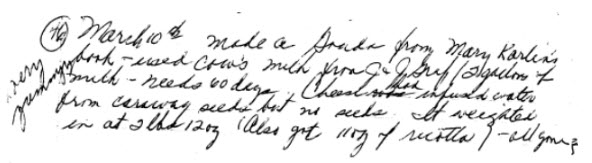 76 March 10th made a Gouda from Mary Karlin's
book - used cow's milk from J & J Gray (2 gallons of
milk - needs 60 days. Cheese had infused water
from caraway seeds but no seeds. It weighted
in at 2 lbs 12 oz (Also got 11 oz of ricotta) - all gone
very yummy